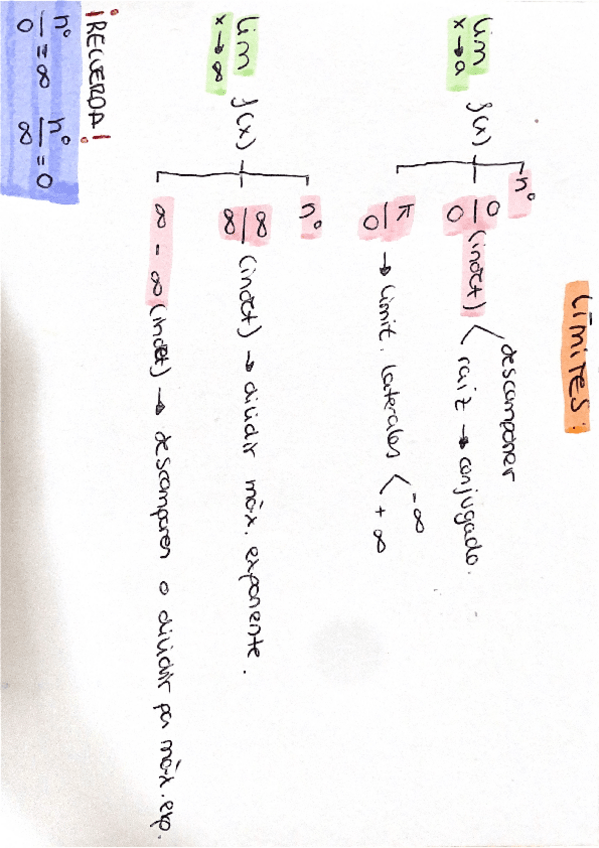 LÍMITES:
lim x→a f(x)
n°
0/0 (indet) < descomponer
raiz → conjugado.
K/0 → limit. laterales < -∞
+∞
lim x→∞ f(x)
n°
∞/∞ (indet) → dividir máx. exponente.
∞ - ∞ (indet) → descomponer o dividir por máx. exp.
¡RECUERDA!
n°/0 = ∞ n°/∞ = 0